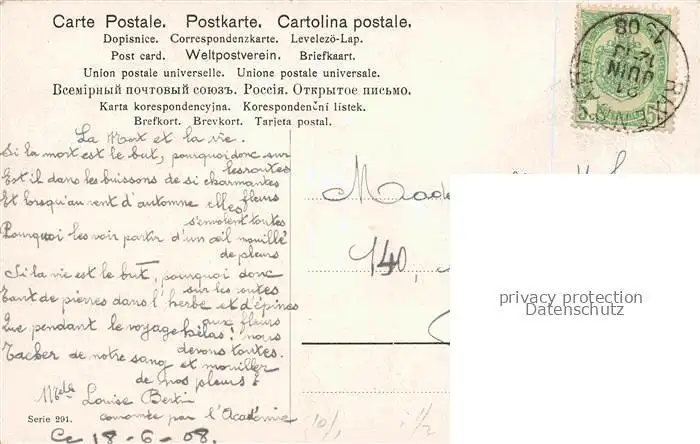 Carte Postale. Postkarte. Cartolina postale.
Dopisnice. Correspondenzkarte. Levelező-Lap.
Post card. Weltpostverein. Briefkaart.
Union postale universelle. Unione postale universale.
Всемірный почтовый союзъ. Россія. Открытое письмо.
Karta korespondencyjna. Korespondenční lístek.
Brefkort. Brevkort. Tarjeta postal.
La Mort et la vie.
Si la mort est le but, pourquoi donc sur
les routes
Est il dans les buissons de si charmantes
fleurs
Et lorsqu'au vent d'automne elles
s'envolent toutes
Pourquoi les voir partir d'un œil mouillé
de pleurs
Si la vie est le but, pourquoi donc
sur les routes
Tant de pierres dans l'herbe et d'épines
aux fleurs
Que pendant le voyage hélas! nous
devons toutes
Tacher de notre sang et mouiller
de nos pleurs?
Melle Louise Bertin
couronnée par l'Académie
Serie 291.
Ce 18-6-08.
Made
140,
10/1
1/2
21
JUIN
08
5
privacy protection
Datenschutz